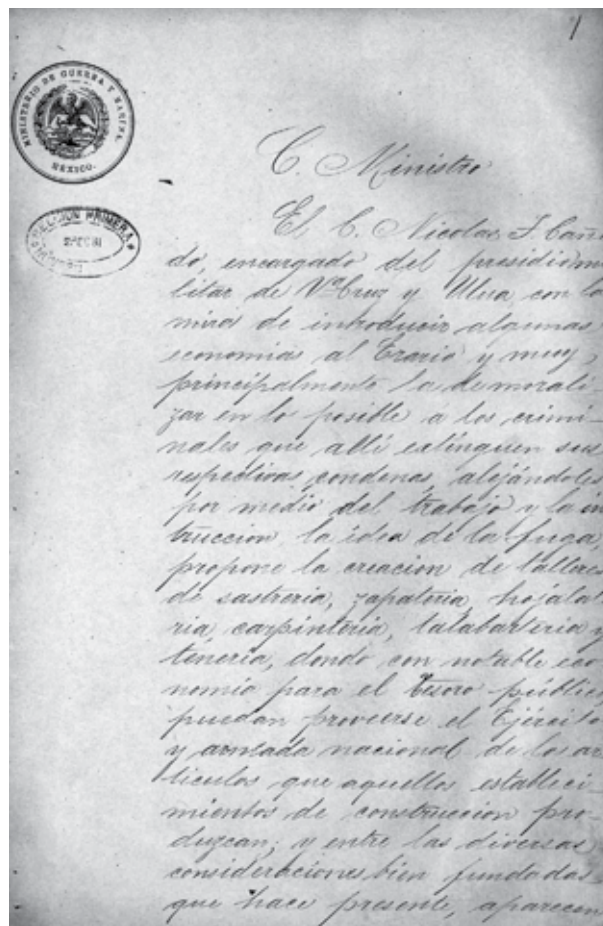 1
MINISTERIO DE GUERRA Y MARINA.
MEXICO.
SECCION PRIMERA
C. Ministro
El C. Nicolas J. Caña
do, encargado del presidio mi
litar de Vª Cruz y Ulua, con la
mira de introducir algunas
economias al Erario y muy
principalmente la de morali-
zar en lo posible a los crimi-
nales que alli extinguen sus
respectivas condenas, alejándoles
por medio del trabajo y la ins
truccion la idea de la fuga,
propone la creacion de talleres
de sastreria, zapateria, hojalat
ria, carpinteria, talabarteria y
teneria, donde con notable eco
nomia para el tesoro público,
puedan proveerse el Ejército
y armada nacional de los ar
ticulos que aquellos estableci-
mientos de construccion pro-
duzcan; y entre las diversas
consideraciones bien fundadas
que hace presente, aparecen